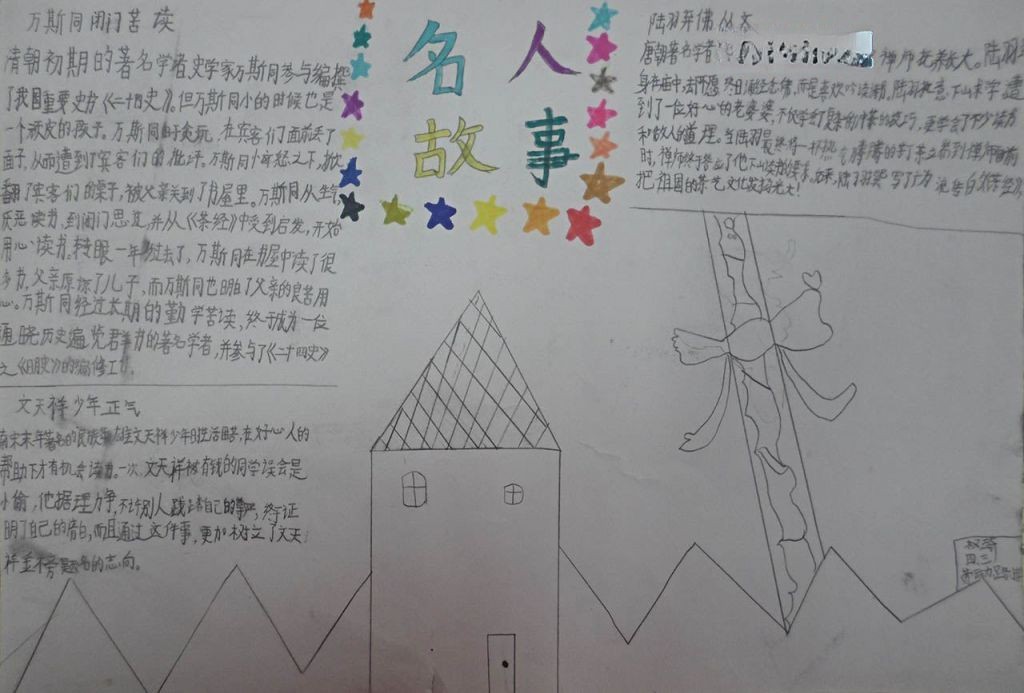 万斯同闭门苦读
清朝初期的著名学者史学家万斯同参与编撰
了我国重要史书《二十四史》。但万斯同小的时候也是
一个顽皮的孩子。万斯同由于贪玩,在宾客们面前丢了
面子,从而遭到了宾客们的批评。万斯同少年怒之下,掀
翻了宾客们的桌子,被父亲关到了书屋里。万斯同从生气,
厌恶读书,到闭门思过,并从《茶经》中受到启发,开始
用心读书。转眼一年过去了,万斯同在书屋中读了很
多书。父亲原谅了儿子,而万斯同也明白了父亲的良苦用
心。万斯同经过长期的勤学苦读,终于成为一位
通晓历史遍览君羊书的著名学者,并参与了《二十四史》
之《明史》的编修工作。
文天祥少年正气
南宋末年著名的民族英雄文天祥少年时生活困苦,在好心人的
帮助下才有机会读书。一次,文天祥被有钱的同学误会是
小偷,他据理力争,不许别人践踏自己的尊严,终于证
明了自己的清白,而且通过这件事,更加树立了文天
祥金榜题名的志向。
名人
故事
陆羽弃佛从文
唐朝著名学者 禅师抚养长大。陆羽
身在庙中,却不愿终日诵经念佛,而是喜欢吟读诗书。陆羽执意下山求学,遭
到了 一位好心的老婆婆,不但学会了复杂的冲茶的技巧,更学会了不少读书
和做人的道理。当陆羽最终将一杯热腾腾的茶端到禅师面前
时,禅师终于答应了他下山读书的要求。后来,陆羽撰写了广为流传的《茶经》,
把祖国的茶艺文化发扬光大!
四三